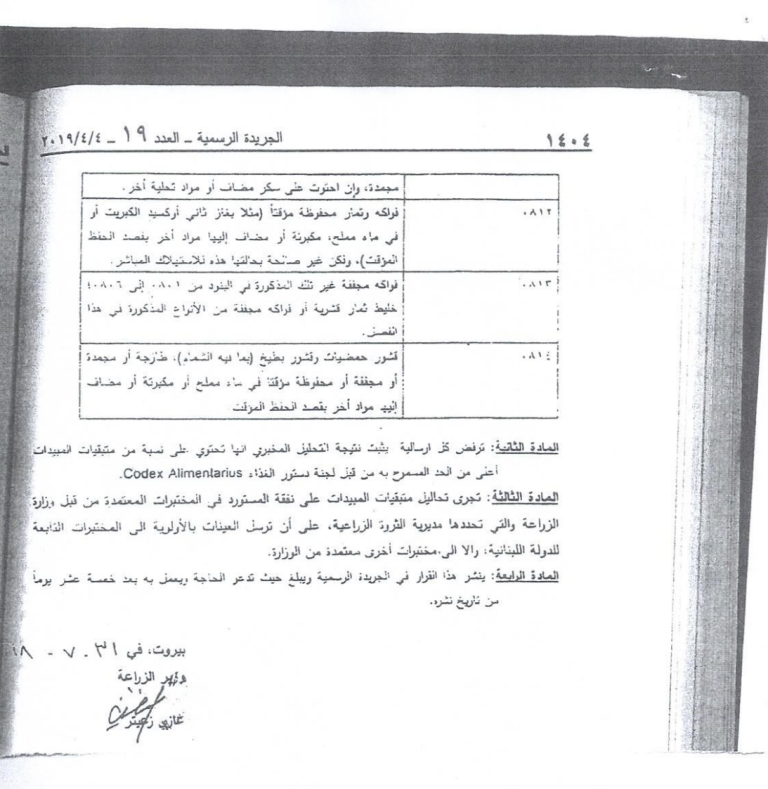 ١٤٠٤
الجريدة الرسمية – العدد ١٩ – ٢٠١٩/٤/٤
مجمدة، وإن احتوت على سكر مضاف أو مواد تحلية أخر.
٠٨١٢
فواكه وثمار محفوظة مؤقتاً (مثلا بغاز ثاني أوكسيد الكبريت أو
في ماء مملح، مكبرتة أو مضاف إليها مواد أخر بقصد الحفظ
المؤقت)، ولكن غير صالحة بحالتها هذه للاستهلاك المباشر.
٠٨١٣
فواكه مجففة غير تلك المذكورة في البنود من ٠٨٠١ إلى ٠٨٠٦؛
خليط ثمار قشرية أو فواكه مجففة من الأنواع المذكورة في هذا
الفصل.
٠٨١٤
قشور حمضيات وقشور بطيخ (بما فيه الشمام)، طازجة أو مجمدة
أو مجففة أو محفوظة مؤقتاً في ماء مملح أو مكبرتة أو مضاف
إليها مواد أخر بقصد الحفظ المؤقت
المادة الثانية: ترفض كل ارسالية يثبت نتيجة التحليل المخبري انها تحتوي على نسبة من متبقيات المبيدات
أعلى من الحد المسموح به من قبل لجنة دستور الغذاء Codex Alimentarius.
المادة الثالثة: تجرى تحاليل متبقيات المبيدات على نفقة المستورد في المختبرات المعتمدة من قبل وزارة
الزراعة والتي تحددها مديرية الثروة الزراعية، على أن ترسل العينات بالأولوية الى المختبرات التابعة
للدولة اللبنانية، والا الى مختبرات أخرى معتمدة من الوزارة.
المادة الرابعة: ينشر هذا القرار في الجريدة الرسمية ويبلغ حيث تدعو الحاجة ويعمل به بعد خمسة عشر يوماً
من تاريخ نشره.
بيروت، في ٣١ - ٧ -
وزير الزراعة
غازي زعيتر